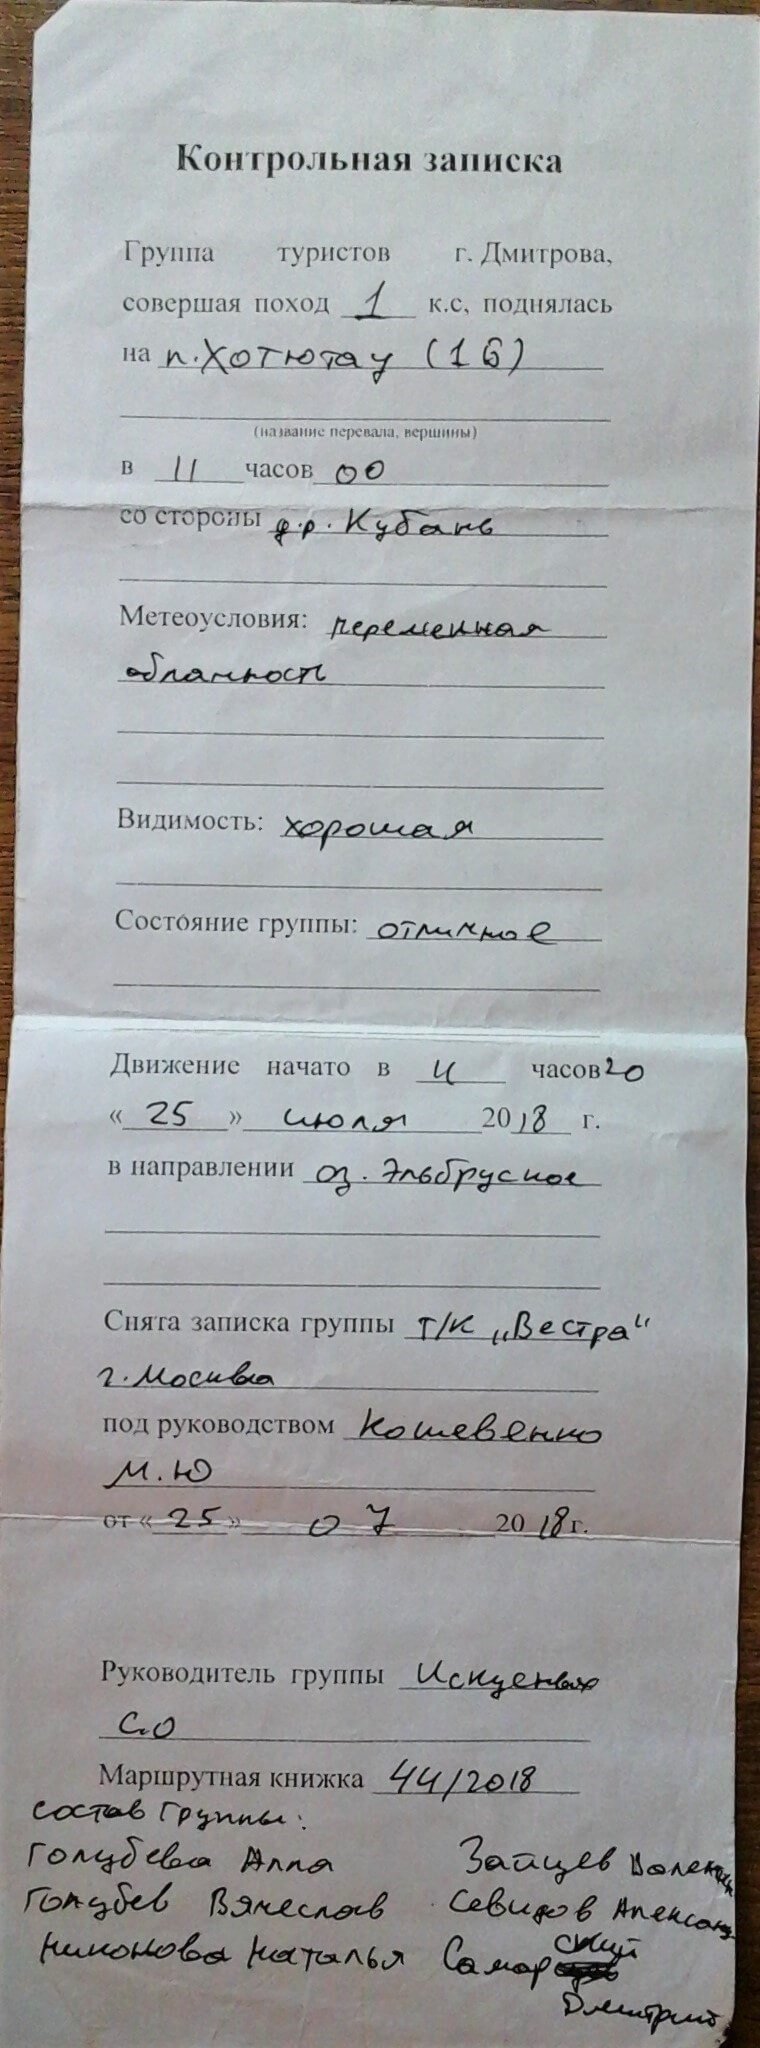 Контрольная записка
Группа туристов г. Дмитрова,
совершая поход 1 к.с, поднялась
на п. Хотютау (1Б)
(название перевала, вершины)
в 11 часов 00
со стороны д.р. Кубань
Метеоусловия: переменная
облачность
Видимость: хорошая
Состояние группы: отличное
Движение начато в 11 часов 20
« 25 » июля 2018 г.
в направлении оз. Эльбрусное
Снята записка группы т/к „Вестра“
г. Москва
под руководством Кошевенко
М.Ю
от « 25 » 07 2018 г.
Руководитель группы
С.О
Маршрутная книжка 44/2018
Состав группы:
Голубева Алла Зайцев
Голубев Вячеслав Севидов
Никонова Наталья Самарский
Дмитрий